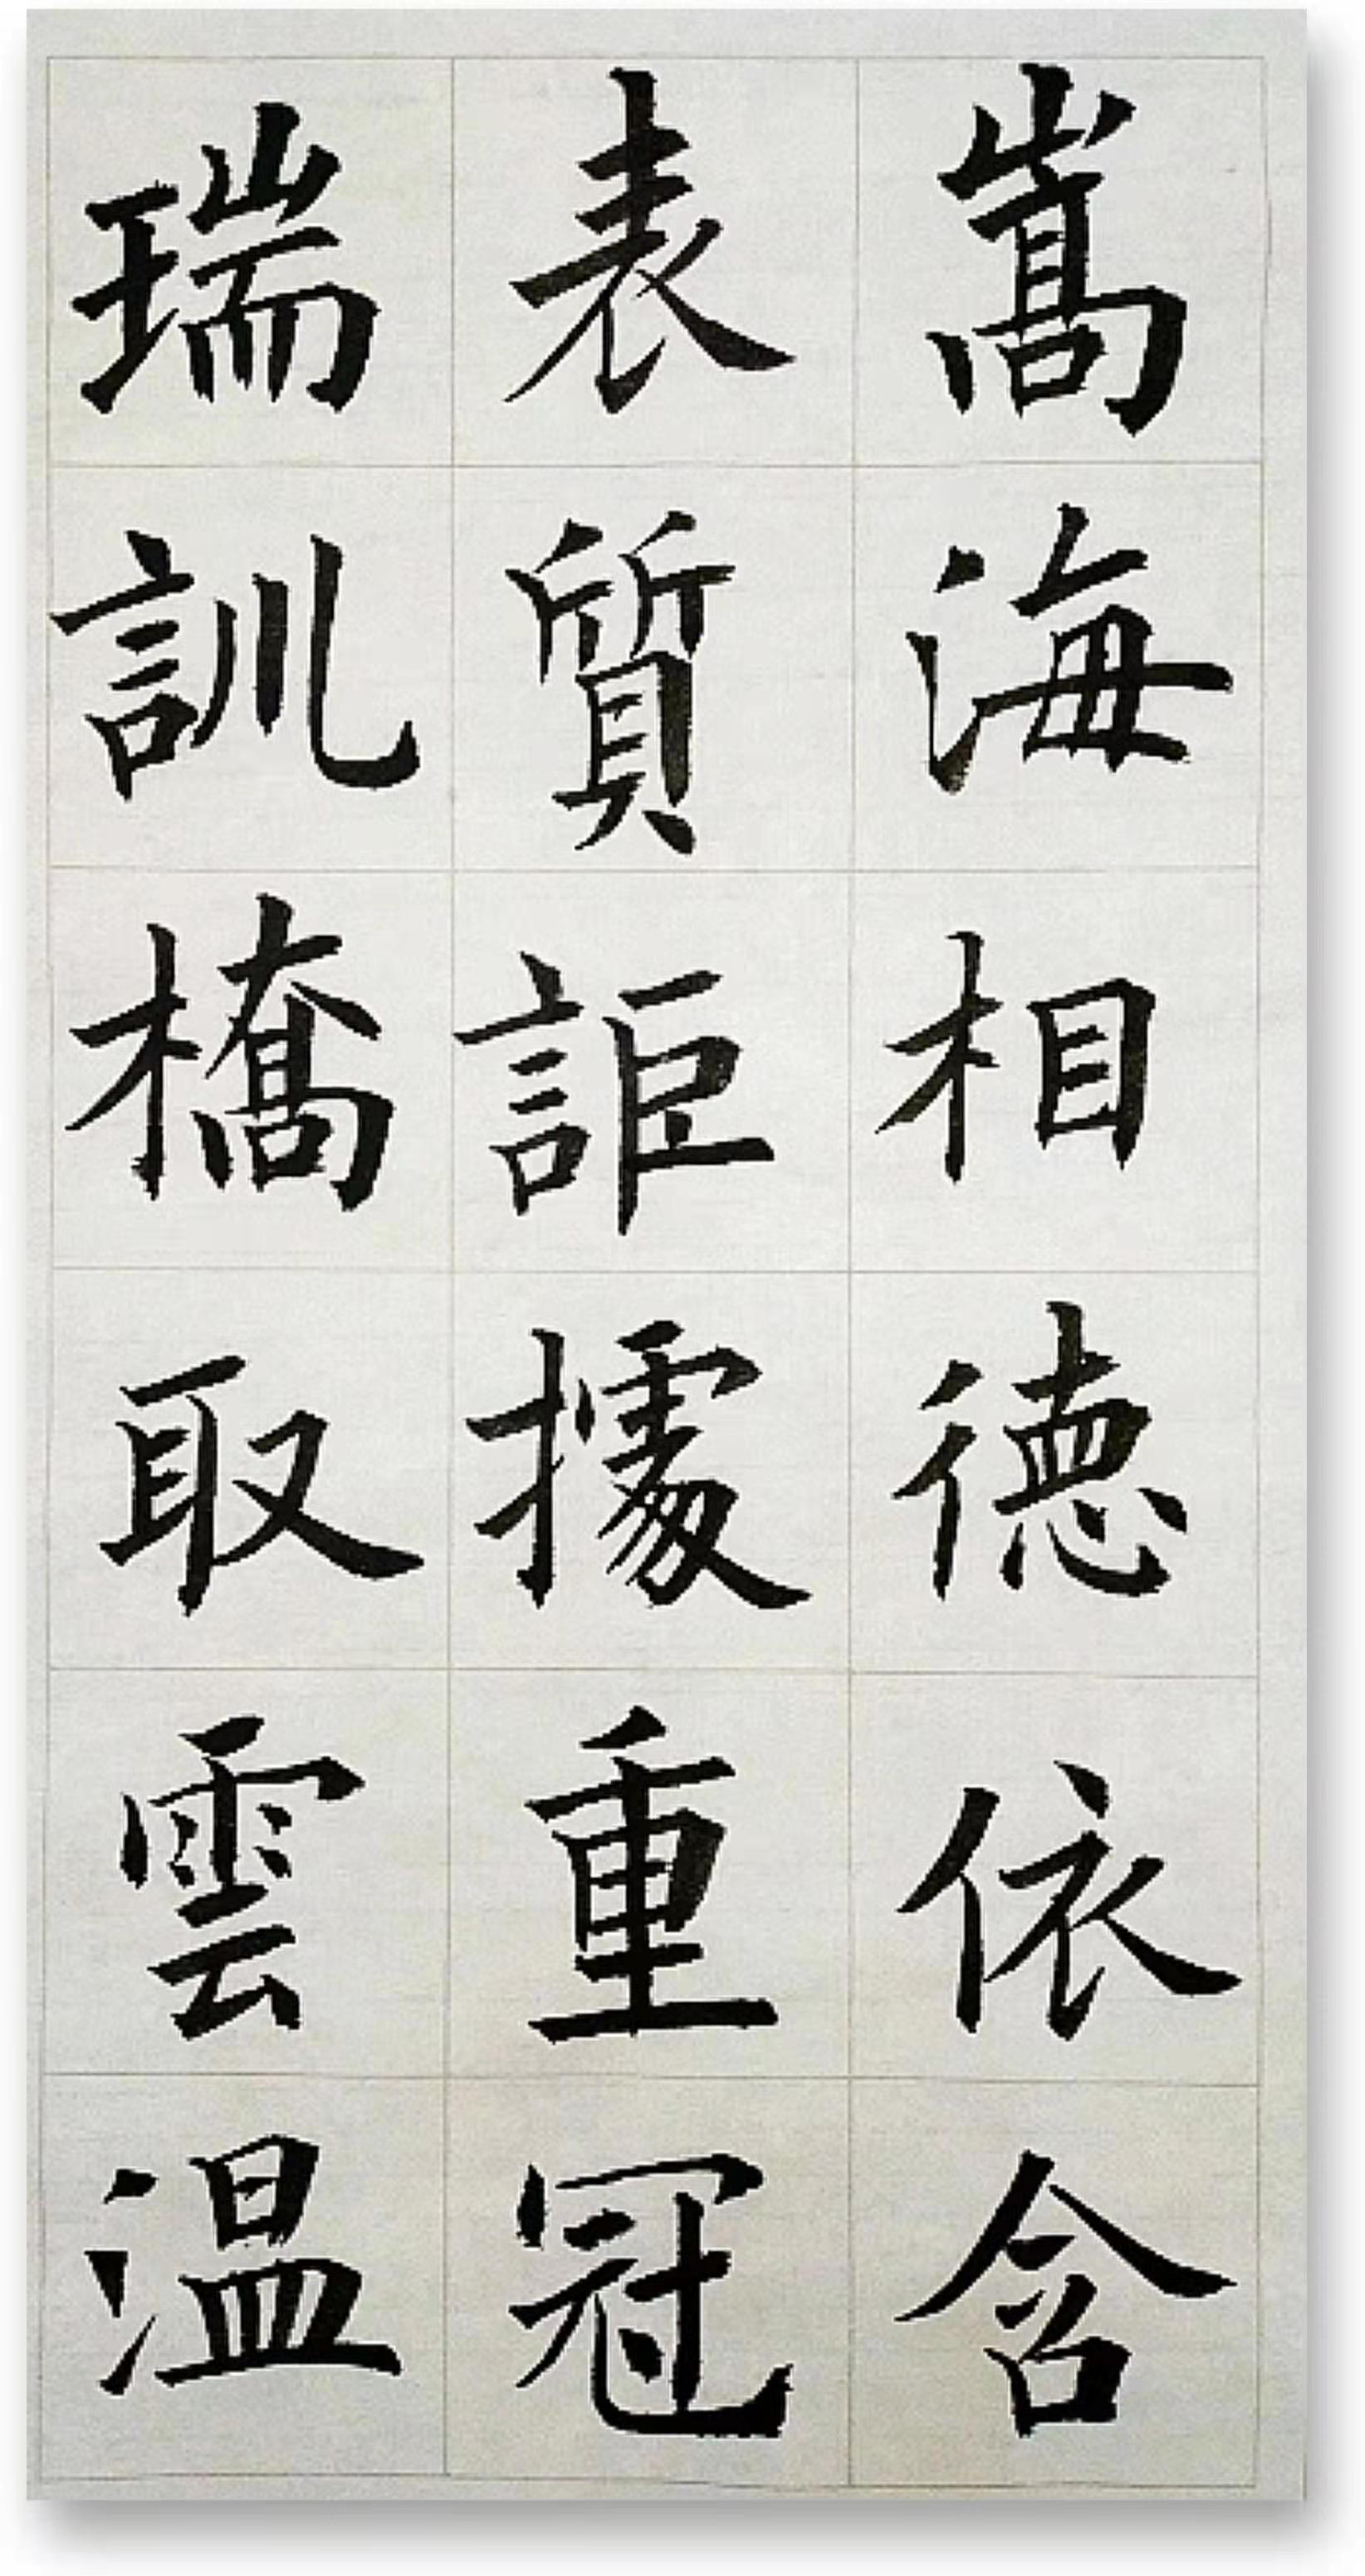 嵩海相德依含
表質詎據重冠
瑞訓橋取雲温